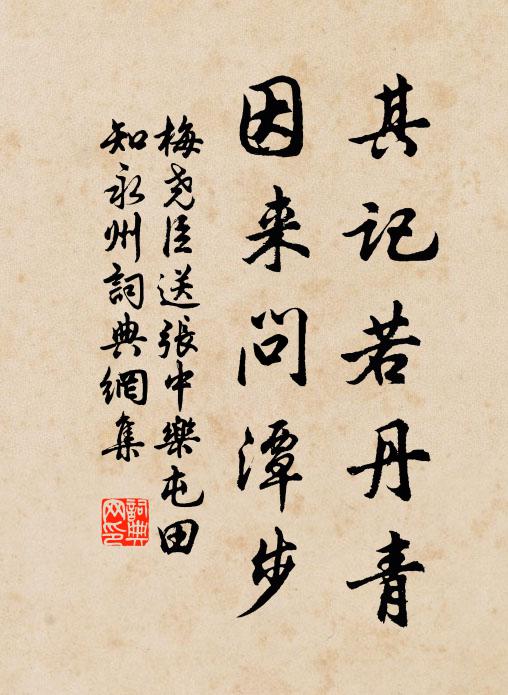 其记若丹青
因来问潭步
梅尧臣送張中樂屯田
知永州詞典網集
詞典
网印